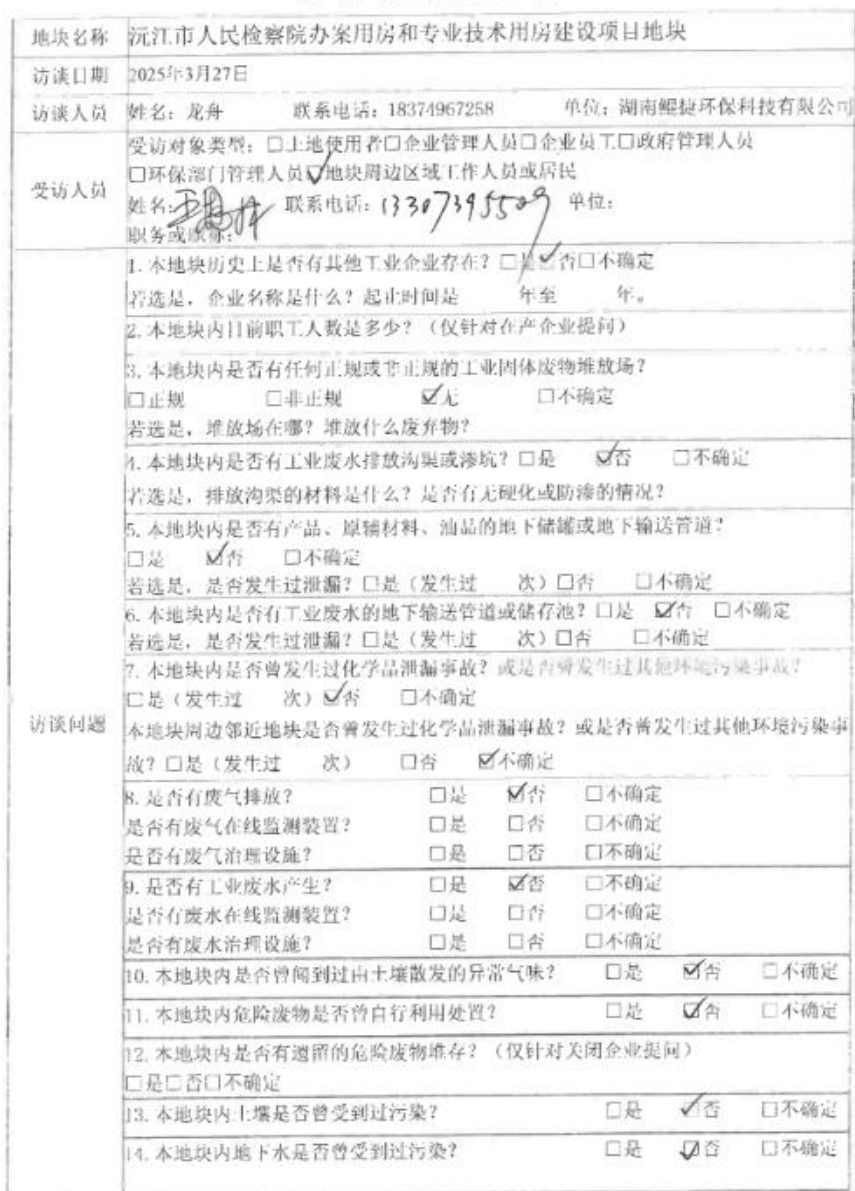 地块名称 沅江市人民检察院办案用房和专业技术用房建设项目地块
访谈日期 2025年3月27日
访谈人员 姓名：龙舟 联系电话：18374967258 单位：湖南鲲捷环保科技有限公司
受访人员
受访对象类型：□土地使用者□企业管理人员□企业员工□政府管理人员
□环保部门管理人员☑地块周边区域工作人员或居民
姓名： 联系电话：13307395509 单位：
职务或职称：
访谈问题
1. 本地块历史上是否有其他工业企业存在？□是☑否□不确定
若选是，企业名称是什么？起止时间是 年至 年。
2. 本地块内目前职工人数是多少？（仅针对在产企业提问）
3. 本地块内是否有任何正规或非正规的工业固体废物堆放场？
□正规 □非正规 ☑无 □不确定
若选是，堆放场在哪？堆放什么废弃物？
4. 本地块内是否有工业废水排放沟渠或渗坑？□是 ☑否 □不确定
若选是，排放沟渠的材料是什么？是否有无硬化或防渗的情况？
5. 本地块内是否有产品、原辅材料、油品的地下储罐或地下输送管道？
□是 ☑否 □不确定
若选是，是否发生过泄漏？□是（发生过 次）□否 □不确定
6. 本地块内是否有工业废水的地下输送管道或储存池？□是 ☑否 □不确定
若选是，是否发生过泄漏？□是（发生过 次）□否 □不确定
7. 本地块内是否曾发生过化学品泄漏事故？或是否曾发生过其他环境污染事故？
□是（发生过 次）☑否 □不确定
本地块周边邻近地块是否曾发生过化学品泄漏事故？或是否曾发生过其他环境污染事
故？□是（发生过 次） □否 ☑不确定
8. 是否有废气排放？ □是 ☑否 □不确定
是否有废气在线监测装置？ □是 □否 □不确定
是否有废气治理设施？ □是 □否 □不确定
9. 是否有工业废水产生？ □是 ☑否 □不确定
是否有废水在线监测装置？ □是 □否 □不确定
是否有废水治理设施？ □是 □否 □不确定
10. 本地块内是否曾闻到过由土壤散发的异常气味？ □是 ☑否 □不确定
11. 本地块内危险废物是否曾自行利用处置？ □是 ☑否 □不确定
12. 本地块内是否有遗留的危险废物堆存？（仅针对关闭企业提问）
□是□否□不确定
13. 本地块内土壤是否曾受到过污染？ □是 ☑否 □不确定
14. 本地块内地下水是否曾受到过污染？ □是 ☑否 □不确定